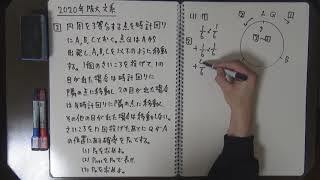 2020年阪大文系
3 円周を3等分する点を時計回り
にA,B,Cとおく。点QはAから
出発し,A,B,Cを以下のように移動
する。1個のさいころを投げて,1の
目が出た場合は時計回りに
隣の点に移動し,2の目が出た場合
は反時計回りに隣の点に移動し,
その他の目が出た場合は移動しない。
さいころをn回投げたあとにQがA
の位置にある確率をPnとする。
(1) P2を求めよ。
(2) Pn+1をPnで表せ。
(3) Pnを求めよ。
(1)
1/6 × 1/6
+ 1/6 × 1/6
+ 4/6
A
B